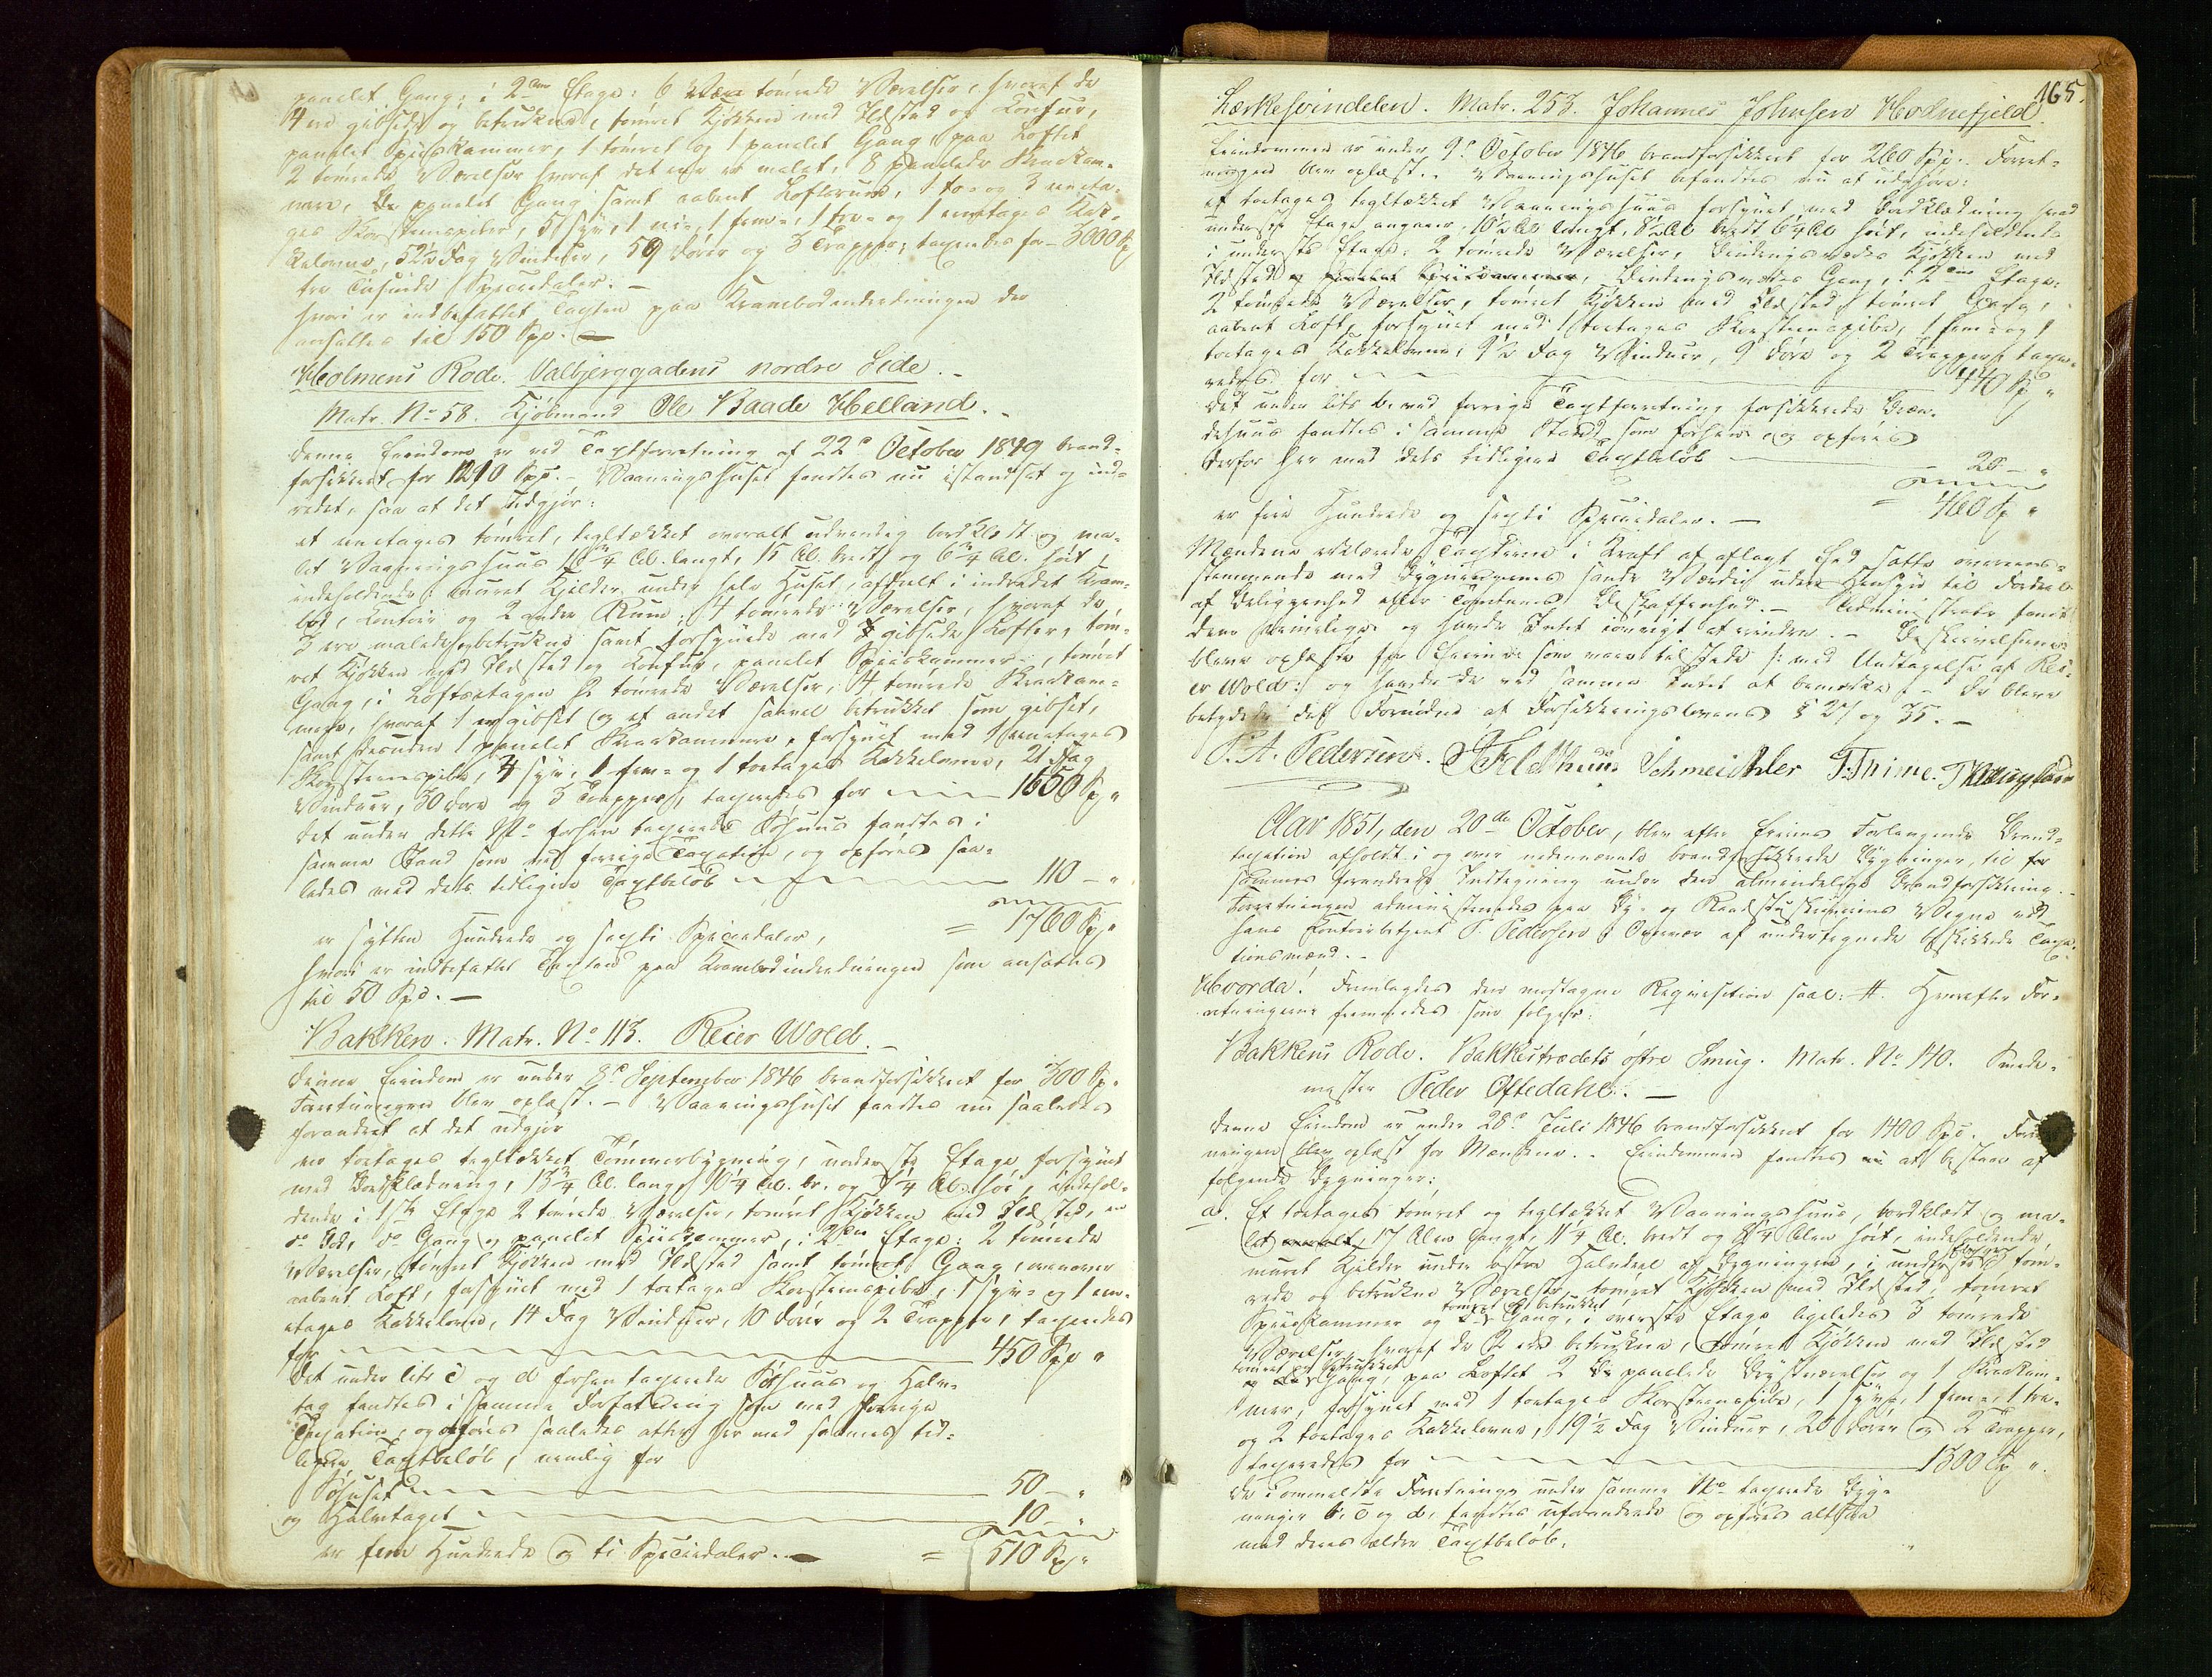 panelet Gang; i 2den Etage: 6 tømrede Værelser, hvoraf de
4 ere gibsede og betrukne, tømret Kjøkken med Ildsted og Komfur,
panelet Spiiskammer, 1 tømret og 1 panelet Gang, paa Loftet
2 tømrede Værelser hvoraf det ene er malet, 8 panelede Kvadkam-
mere, panelet Gang samt aabent Loftsrum, 1 to- og 3 eneta-
ges Skorsteenspiber, 5 syv, 1 ni-, 1 fem-, 1 tre- og 1 enetages Kak-
kelovne, 52½ Fag Vinduer, 59 Døre og 3 Trapper; taxeredes for – 3000 Sp
tre Tusinde Speciedaler. –
hvori er indbefattet Taxten paa Krambodindredningen der
ansattes til 150 Spd. –
Holmens Rode. Valbjerggadens nordre Side. –
Matr. No 58. Kjøbmand Ole Baade Helland. –
Denne Eiendom er ved Taxtforretning af 22de October 1849 brand-
forsikkret for 1210 Spd. – Vaaningshuset fandtes nu istandsat og ind-
redet, saa at det udgjør:
et eenetages tømret, tegltækket overalt udvendig bordklædt og ma-
let Vaaningshuus 16¾ Al. langt, 15 Al. bredt og 6¾ Al. høit,
indeholdende: muret Kjelder under hele Huset, afdeelt i indredet Kram-
bod, Contoir og 2 andre Rum; 4 tømrede Værelser, hvoraf de
3 ere malede og betrukne samt forsynede med gibsede Lofter, tøm-
ret Kjøkken med Ildsted og Komfur, panelet Spiiskammer, tømret
Gang, i Loftsetagen 2 tømrede Værelser, 4 tømrede Kvadkam-
mere, hvoraf 1 er gibset og et andet saavel betrukket som gibset,
samt desuden 1 panelet Kvadkammer, forsynet med 1 eenetages
Skorsteenspibe, 4 syv, 1 fem- og 1 toetages Kakkelovne, 21 Fag
Vinduer, 30 Døre og 3 Trapper, taxeredes for – 1650 Sp "
Det under dette No forhen taxerede Søhuus fandtes i
samme Stand som ved forrige Taxation, og opføres saa-
ledes med dets tidligere Taxtbeløb – 110 – "
er sytten Hundrede og sexti Speciedaler, = 1760 Sp "
hvori er indbefattet Taxten paa Krambodindredningen som ansattes
til 50 Spd. –
Bakken. Matr. No 113. Reier Wold. –
Denne Eiendom er under 8de September 1846 brandforsikkret for 300 Sp.
Forretningen blev oplæst. – Vaaningshuset fandtes nu saaledes
forandret at det udgjør
en toetages tegltækket Tømmerbygning, underste Etage forsynet
med Bordklædning, 13¾ Al. lang, 10¼ Al. br. og Al. høi, indehol-
dende i 1ste Etage 2 tømrede Værelser, tømret Kjøkken med Ildsted, en
do Gang og panelet Spiiskammer, i 2den Etage: 2 tømrede
Værelser, tømret Kjøkken med Ildsted samt tømret Gang, ovenover
aabent Loft, forsynet med 1 toetages Skorsteenspibe, 1 syv- og 1 en-
etages Kakkelovne, 14 Fag Vinduer, 10 Døre og 2 Trapper, taxeredes
for – 450 Spd "
Det under litr c og d forhen taxerede Søhuus og Halv-
tag fandtes i samme Forfatning som ved forrige
Taxation, og opføres saaledes atter her med sammes tid-
ligere Taxtbeløb, nemlig for
Søhuset – 50 – "
og Halvtaget – 10 – "
er fem Hundrede og ti Speciedaler. – = 510 Sp "
165.
Lærkesvindelen. Matr. 253. Johannes Johnsen Hodnefjeld.
Eiendommen er under 9de October 1846 brandforsikkret for 260 Spd. Forret-
ningen blev oplæst. – Vaaningshuset befandtes nu at udgjøre:
et toetages tegltækket Vaaningshuus forsynet med Bordklædning hvad
underste Etage angaaer, 10½ Al. langt, 8½ Al. bredt, 6¼ Al. høit, indeholdende
i underste Etage: 2 tømrede Værelser, Bindingsværks Kjøkken med
Ildsted, Bindingsværks Gang, i 2den Etage:
2 tømrede Værelser, tømret Kjøkken med Ildsted, tømret Gang,
aabent Loft, forsynet med 1 toetages Skorsteenspibe, 1 fem- og 1
toetages Kakkelovne, 9½ Fag Vinduer, 9 Døre og 2 Trapper; taxe-
redes for – 440 Sp "
Det under litr b. ved forrige Taxtforretning forsikkrede Bræn-
dehuus fandtes i samme Stand som forhen, og opføres
derfor her med dets tidligere Taxtbeløb – 20 – "
er fire Hundrede og sexti Speciedaler. – = 460 Sp "
Mændene erklærede Taxterne i Kraft af aflagt Eed satte overeens-
stemmende med Bygningernes sande Værdie uden Hensyn til Fordeel
af Beliggenhed eller Tomternes Beskaffenhed. – Administrator fandt
dem rimelige og havde Intet iøvrigt at erindre. – Beskrivelserne
bleve oplæste for Eierne som vare tilstede /: med Undtagelse af Rei-
er Wold :/ og havde de ved samme Intet at bemærke. – De bleve
betydede det Fornødne af Forsikkringslovens § 27 og 35. –
P. A. Pedersen. Feldthuus Schmeichler T. Thime.
Aar 1851, den 20de October, blev efter Eiernes Forlangende Brand-
taxation afholdt i og over nedennævnte brandforsikkrede Bygninger, til
sammes forandrede Indtegning under den almindelige Brandforsikkring. –
Forretningen administreredes paa By- og Raadstueskriverens Vegne ved
hans Contoirbetjent P. Pedersen i Overvær af undertegnede beskikkede Taxa-
tionsmænd. –
Hvorda! Fremlagdes den modtagne Reqvisition saal: #. Hvorefter For-
retningerne fremmedes som følger:
Bakkens Rode. Bakkestrædets østre Smug. Matr. No 140. Smede-
mester Peder Oftedahl. –
Denne Eiendom er under 28de Juli 1846 brandforsikkret for 1400 Spd.
ningen blev oplæst for Mændene. – Eiendommen fandtes nu at bestaae af
følgende Bygninger:
a. Et toetages tømret og tegltækket Vaaningshuus, bordklædt og ma-
let, 17 Alen langt, 11¼ Al. bredt og Alen høit, indeholdende,
muret Kjelder under østre Halvdeel af Bygningen, i underste Etage 3 tøm-
rede og betrukne Værelser, tømret Kjøkken med Ildsted, tømret
Spiiskammer og tømret og betrukket Gang, i øverste Etage ligeledes 3 tømrede
Værelser, hvoraf de 2 ere betrukne, tømret Kjøkken med Ildsted
tømret og betrukket Gang, paa Loftet 2 panelede Qvistværelser og 1 Kvadkam-
mer, forsynet med 1 toetages Skorsteenspibe, 1 syv-, 1 fem-, 1 tre-
og 2 toetages Kakkelovne, 19½ Fag Vinduer, 20 Døre og 2 Trapper,
taxeredes for – 1300 Sp "
De i ommeldte Forretning under samme No taxerede Byg-
ninger b, c og d, fandtes uforandrede og opføres altsaa
med deres ældre Taxtbeløb.